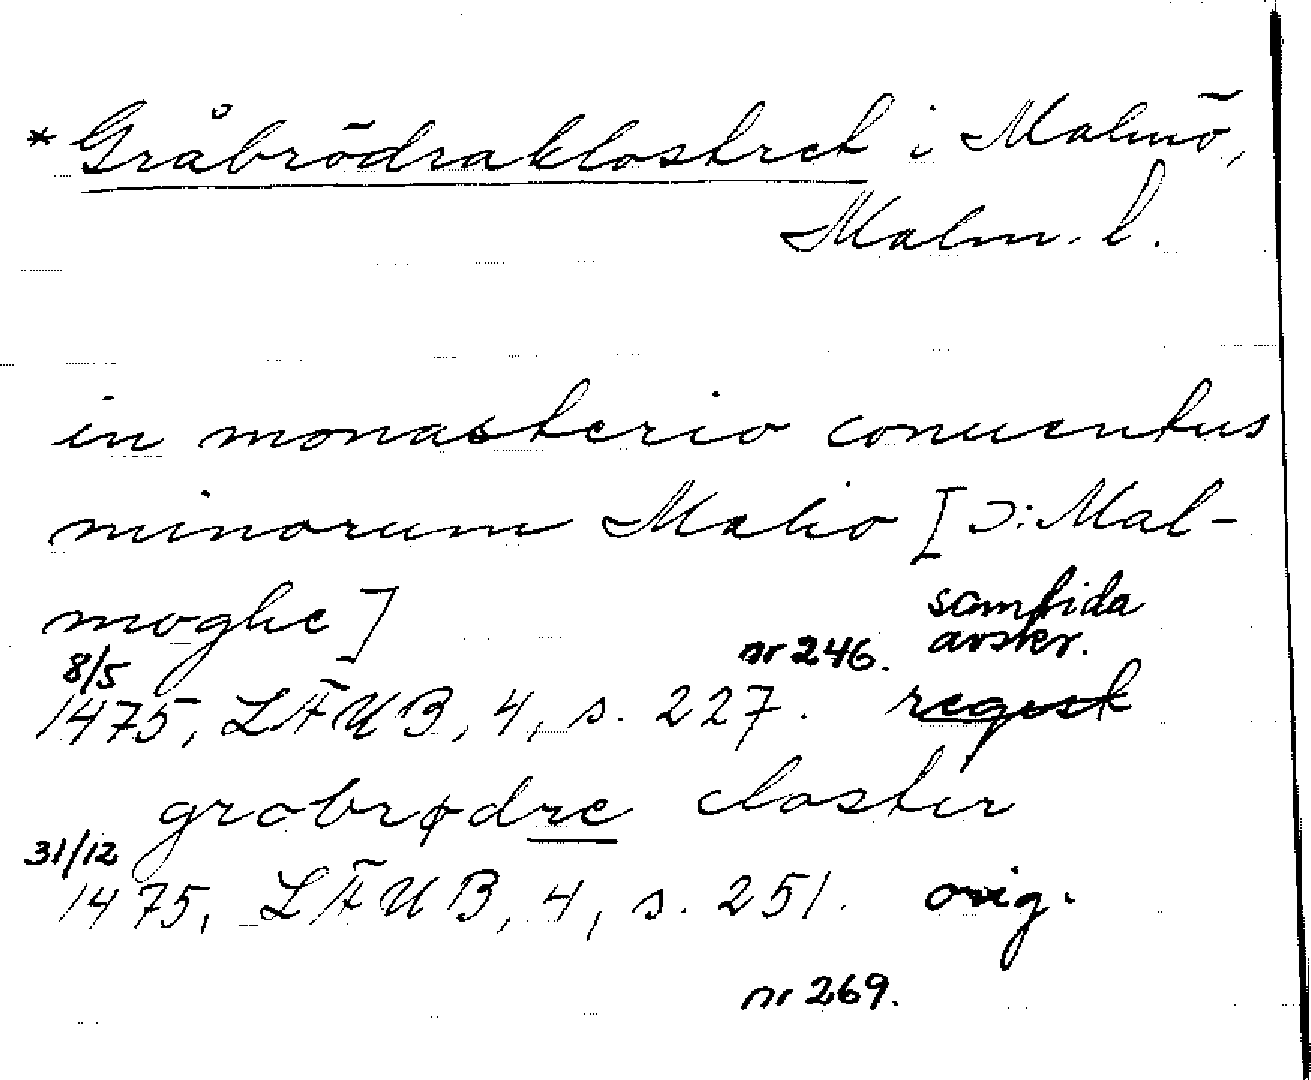 * Gråbrödraklostret i Malmö,
Malm. l.
in monasterio conuentus
minorum Malio [ɔ: Mal-
moghe]
samtida
8/5 nr 246. avskr.
1475, LÄUB, 4, s. 227. regest
grobrødre closter
31/12
1475, LÄUB, 4, s. 251. orig.
nr 269.